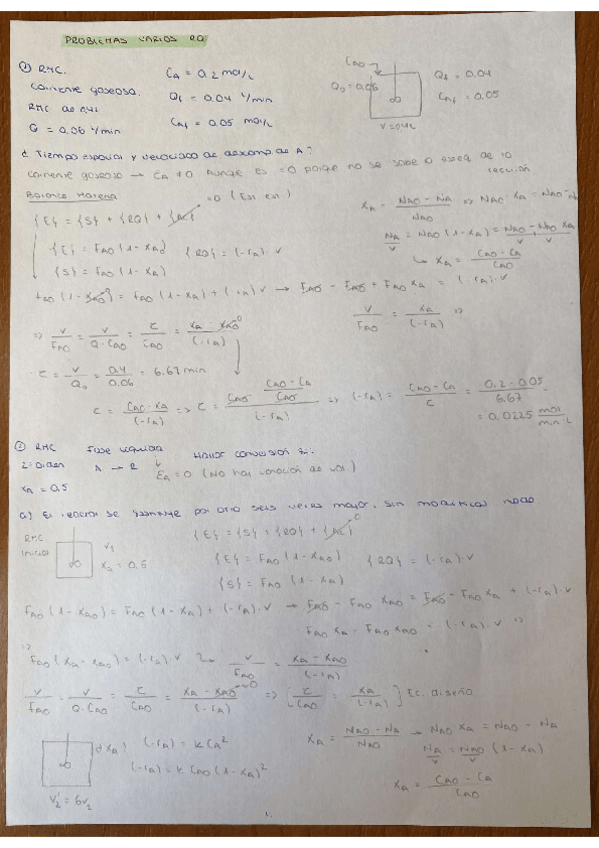 PROBLEMAS VARIOS RQ
① RMC.
Corriente gaseosa.
RMC de 0,4 L
Q = 0.06 L/min
CA = 0.2 mol/L
Qf = 0.04 L/min
CAf = 0.05 mol/L
CAO
Q0 = 0.06
V = 0.4 L
Qf = 0.04
CAf = 0.05
d Tiempo espacial y velocidad de desap de A?
Corriente gaseosa → CA ≠ 0 Aunque es =0 porque no se sabe la esteq de la
reacción
Balance Materia
{E} = {S} + {RQ} + {AC} =0 (Est est)
{E} = FAO (1 - XAO) {RQ} = (-rA) · V
{S} = FAO (1 - XA)
XA = NAO - NA / NAO => NAO · XA = NAO - NA
NA / V = NAO (1 - XA) / V = NAO - NAO XA / V
↳ XA = CAO - CA / CAO
FAO (1 - XAO) = FAO (1 - XA) + (-rA) V → FAO - FAO + FAO XA = (-rA) · V
=> V / FAO = V / Q · CAO = τ / CAO = XA - XAO / (-rA)
V / FAO = XA / (-rA) =>
τ = V / Q0 = 0.4 / 0.06 = 6.67 min
τ = CAO · XA / (-rA) => τ = CAO · CAO - CA / CAO / (-rA) => (-rA) = CAO - CA / τ = 0.2 - 0.05 / 6.67 =
= 0.0225 mol / min · L
② RMC Fase líquida Hallar conversión si:
2º orden A → R
εA = 0 (No hay variación de vol.)
XA = 0,5
a) El reactor se sustituye por otro seis veces mayor, sin modificar nada
RMC
inicial
V1
{E} = {S} + {RQ} + {AC} 0
{E} = FAO (1 - XAO) {RQ} = (-rA) · V
{S} = FAO (1 - XA)
FAO (1 - XAO) = FAO (1 - XA) + (-rA) · V → FAO - FAO XAO = FAO - FAO XA + (-rA) · V
FAO XA - FAO XAO = (-rA) · V =>
=>
FAO (XA - XAO) = (-rA) · V ↳ V / FAO = XA - XAO / (-rA)
V / FAO = V / Q · CAO = τ / CAO = XA - XAO =0 / (-rA) => [ τ / CAO = XA / (-rA) ] Ec. diseño
d XA? (-rA) = k CA²
(-rA) = k CAO (1 - XA)²
V2' = 6V2
XA = NAO - NA / NAO → NAO XA = NAO - NA
NA / V = NAO / V (1 - XA)
XA = CAO - CA / CAO